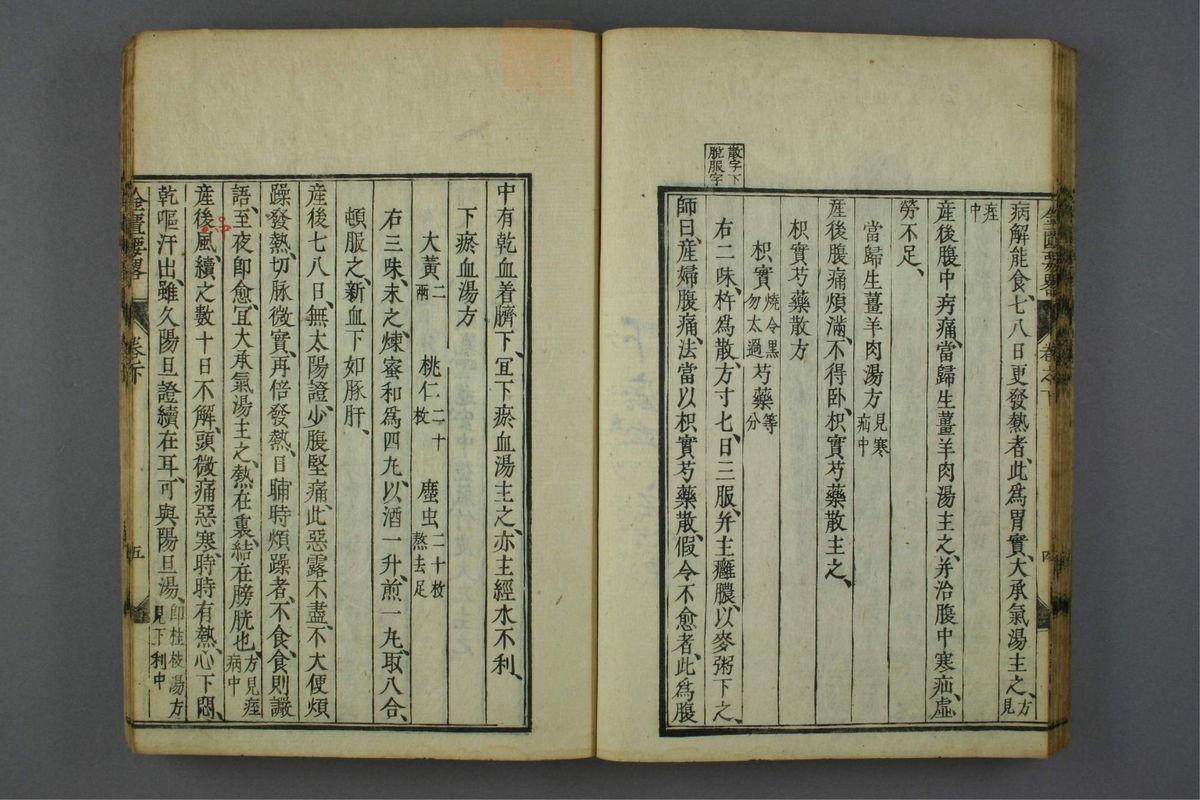 金匱要畧 卷之下
病解能食、七八日更發熱者、此爲胃實、大承氣湯主之、方見
痓中
産後腹中㽲痛、當歸生薑羊肉湯主之、并治腹中寒疝虛
勞不足、
當歸生薑羊肉湯方見寒疝中
産後腹痛煩滿、不得卧、枳實芍藥散主之、
枳實芍藥散方
枳實燒令黑勿太過 芍藥等分
散字下脫服字
右二味、杵爲散、方寸七、日三服、并主癰膿、以麥粥下之、
師曰、産婦腹痛、法當以枳實芍藥散、假令不愈者、此爲腹
中有乾血着臍下、宜下瘀血湯主之、亦主經水不利、
下瘀血湯方
大黃二兩 桃仁二十枚 䗪虫二十枚熬去足
右三味、末之、煉蜜和爲四丸、以酒一升、煎一丸、取八合、
頓服之、新血下如豚肝、
産後七八日、無太陽證、少腹堅痛、此惡露不盡、不大便、煩
躁發熱、切脉微實、再倍發熱、日晡時煩躁者、不食、食則讝
語、至夜即愈、宜大承氣湯主之、熱在裏、結在膀胱也、方見痓病中
産後風、續之數十日不解、頭微痛惡寒、時時有熱、心下悶、
乾嘔汗出、雖久陽旦證續在耳、可與陽旦湯、即桂枝湯方見下利中
金匱要畧 卷下 五